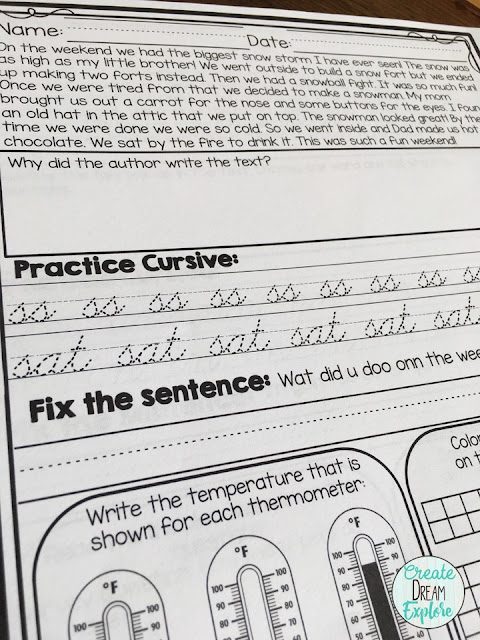 Name:
Date:
On the weekend we had the biggest snow storm I have ever seen! The snow was
as high as my little brother! We went outside to build a snow fort but we ended
up making two forts instead. Then we had a snowball fight. It was so much fun!
Once we were tired from that we decided to make a snowman. My mom
brought us out a carrot for the nose and some buttons for the eyes. I
an old hat in the attic that we put on top. The snowman looked great! By the
time we were done we were so cold. So we went inside and Dad made us hot
chocolate. We sat by the fire to drink it. This was such a fun weekend!
Why did the author write the text?
Practice Cursive:
ss ss ss ss ss ss ss ss ss
sat sat sat sat sat sat
Fix the sentence: Wat did u doo onn the
Write the temperature that is
shown for each thermometer:
on t
°F °F °F
100 100 100 100 100 100
90 90 90 90
80 80 80
70 70
60 60
50
Create
DREAM
Explore